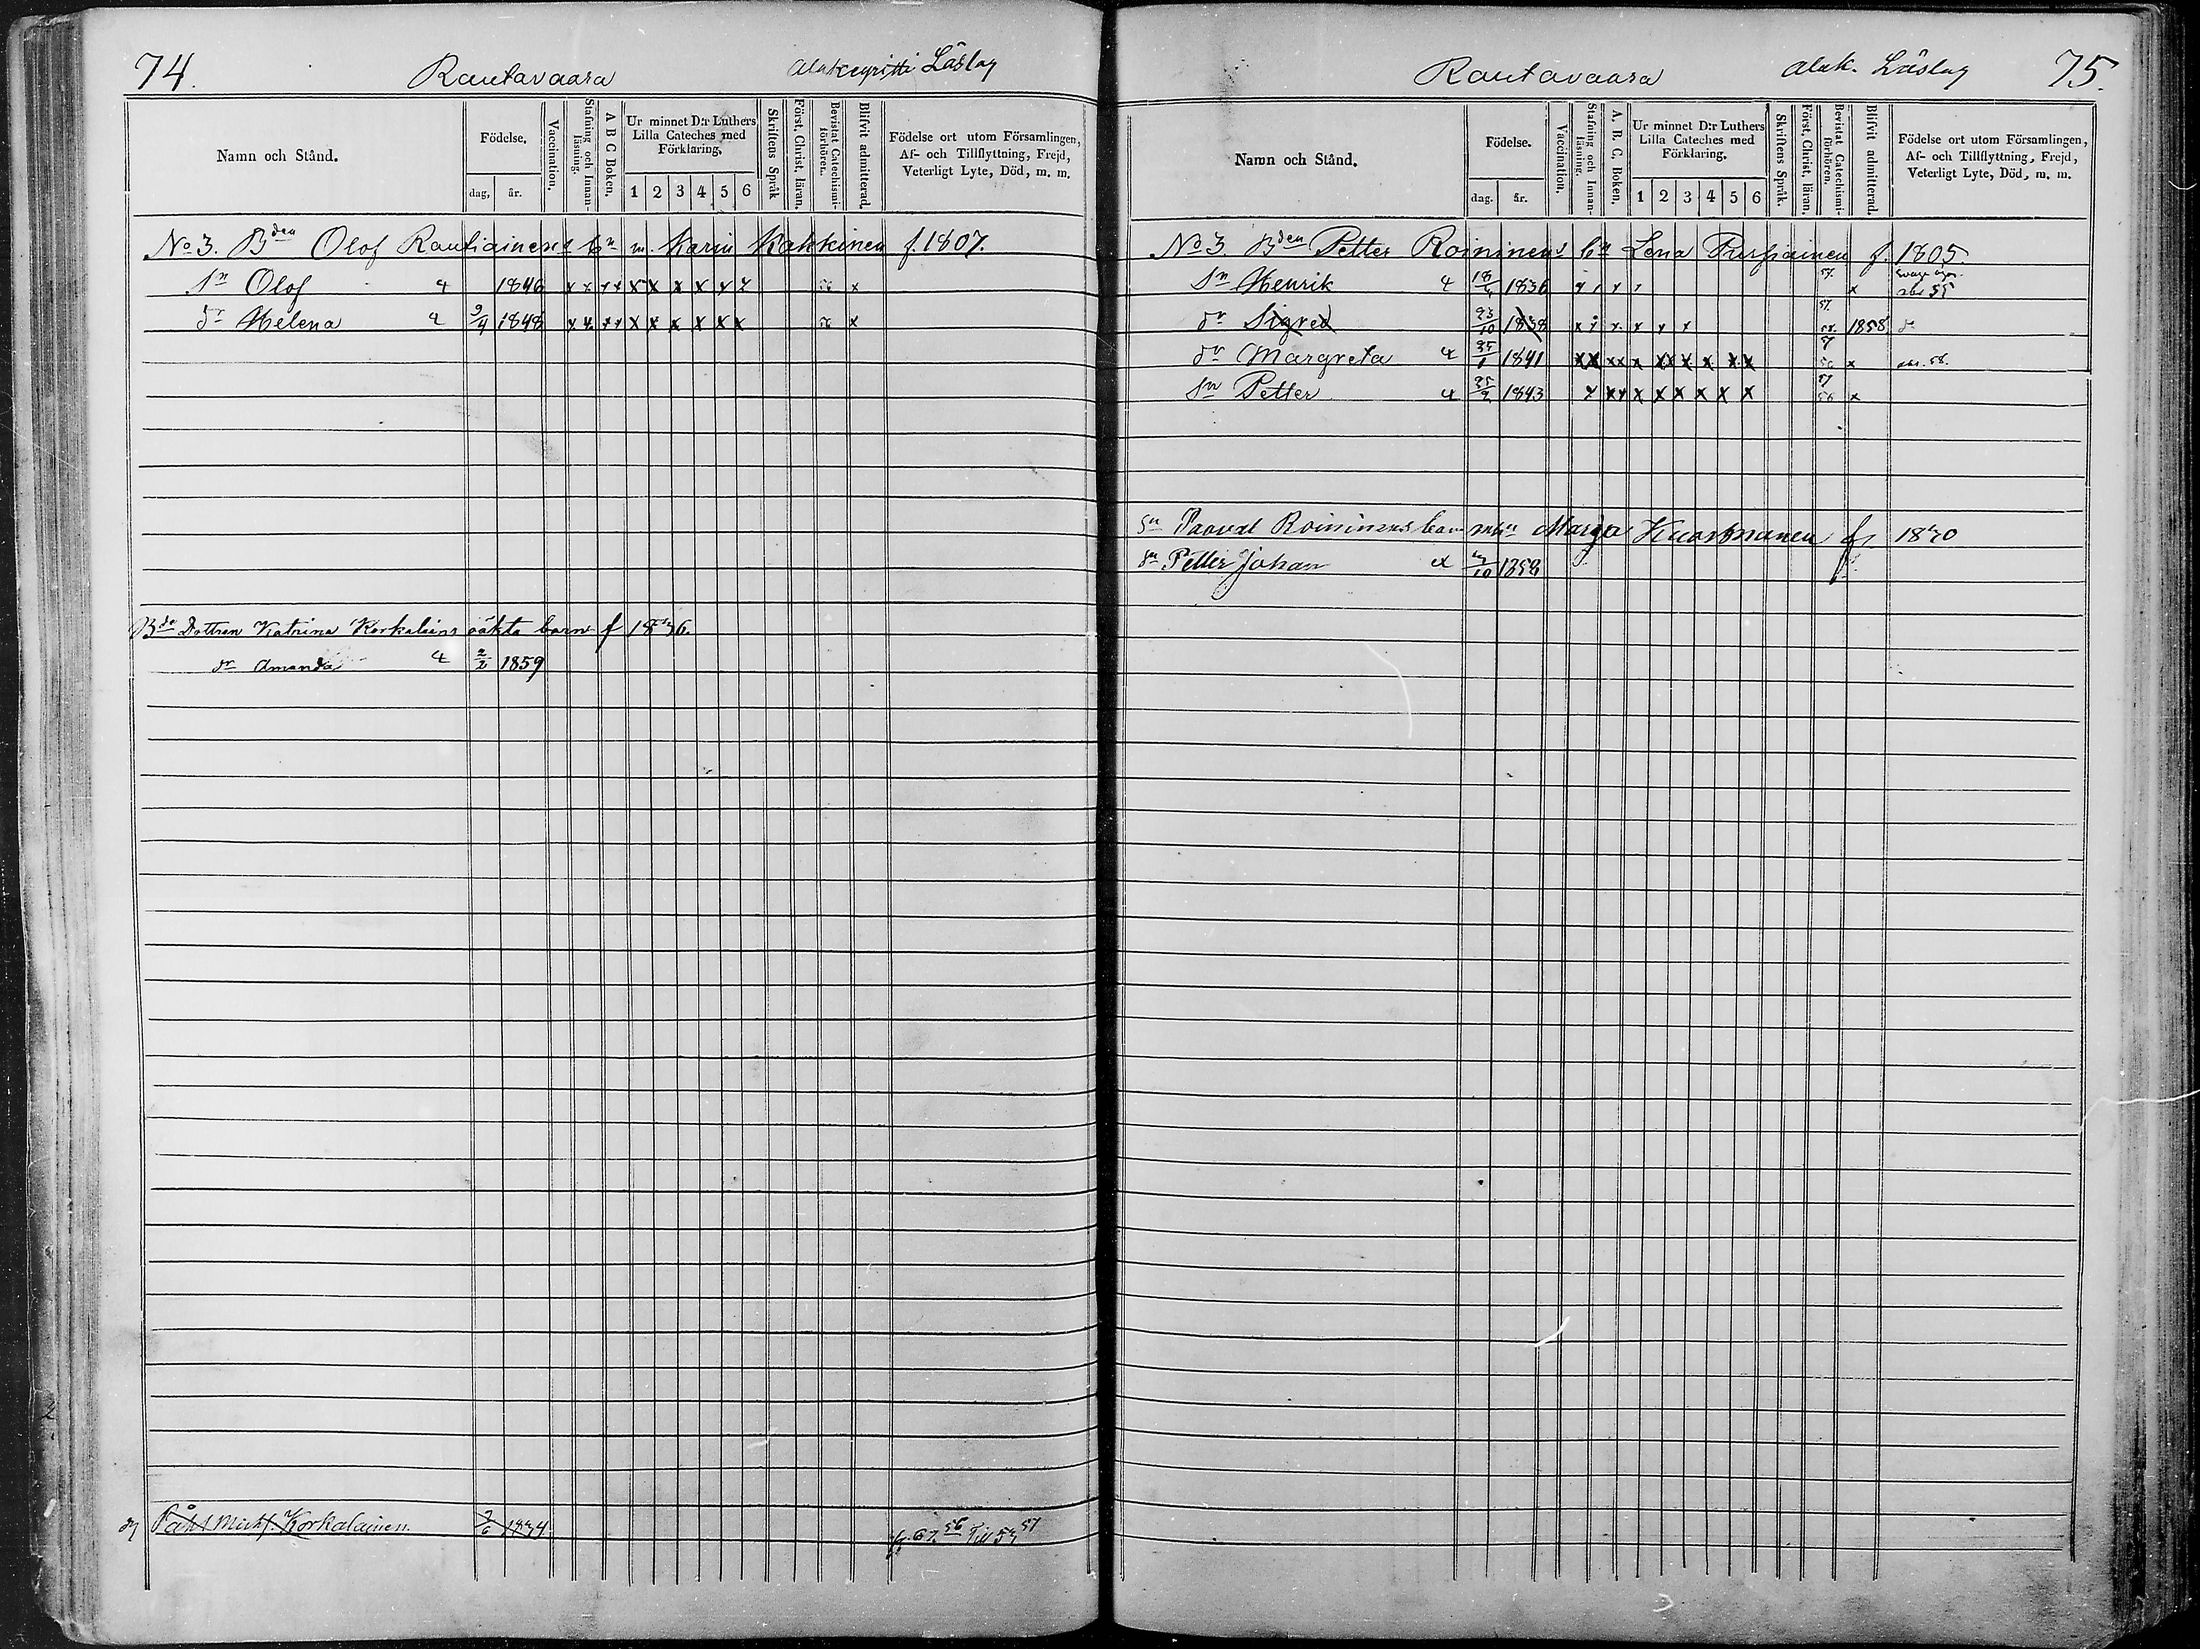 74.
Rautavaara
Alakeyritti Läslag
Namn och Stånd.
Födelse.
dag, år.
Vaccination.
Stafning och Innan-läsning.
A B C Boken.
Ur minnet D:r Luthers Lilla Cateches med Förklaring.
1 2 3 4 5 6
Skriftens Språk
Först. Christ. läran.
Bevistat Catechismi-förhören.
Blifvit admitterad.
Födelse ort utom Församlingen,
Af- och Tillflyttning, Frejd,
Veterligt Lyte, Död, m. m.
No 3. Bden Olof Rautiainens bn m. Karin Kakkinen f. 1807.
Sn Olof 1846 x x x x x x x x x x 56 x
dr Helena 9/4 1848 x x x x x x x x x x 56 x
Bde Dottren Katrina Korkalains oäkta barn f 1836.
dr Amanda 2/2 1859
Påhl Mich. Korkalainen. 1834
fr. 67. 56 Till 53 57
Rautavaara
Alak. Läslag
75.
Namn och Stånd.
Födelse.
dag. år.
Vaccination.
Stafning och Innan-läsning.
A. B. C. Boken.
Ur minnet D:r Luthers Lilla Cateches med Förklaring.
1 2 3 4 5 6
Skriftens Språk.
Först. Christ. läran.
Bevistat Catechismi-förhören.
Blifvit admitterad.
Födelse ort utom Församlingen,
Af- och Tillflyttning, Frejd,
Veterligt Lyte, Död, m. m.
No 3. Bden Petter Roininens bn Lena Pursiainen f. 1805.
Sn Henrik 1836 57. x
dr Sigred 23/10 1838 57. 58. 1858
dr Margreta 25/1 1841 x x x x x x x x x x 57 56 x abs. 58.
Sn Petter 25/2 1843 x x x x x x x x x 57 56 x
Sn Paaval Roininens barn m. Marja Kuosmanen 1830
Sn Petter Johan 1858